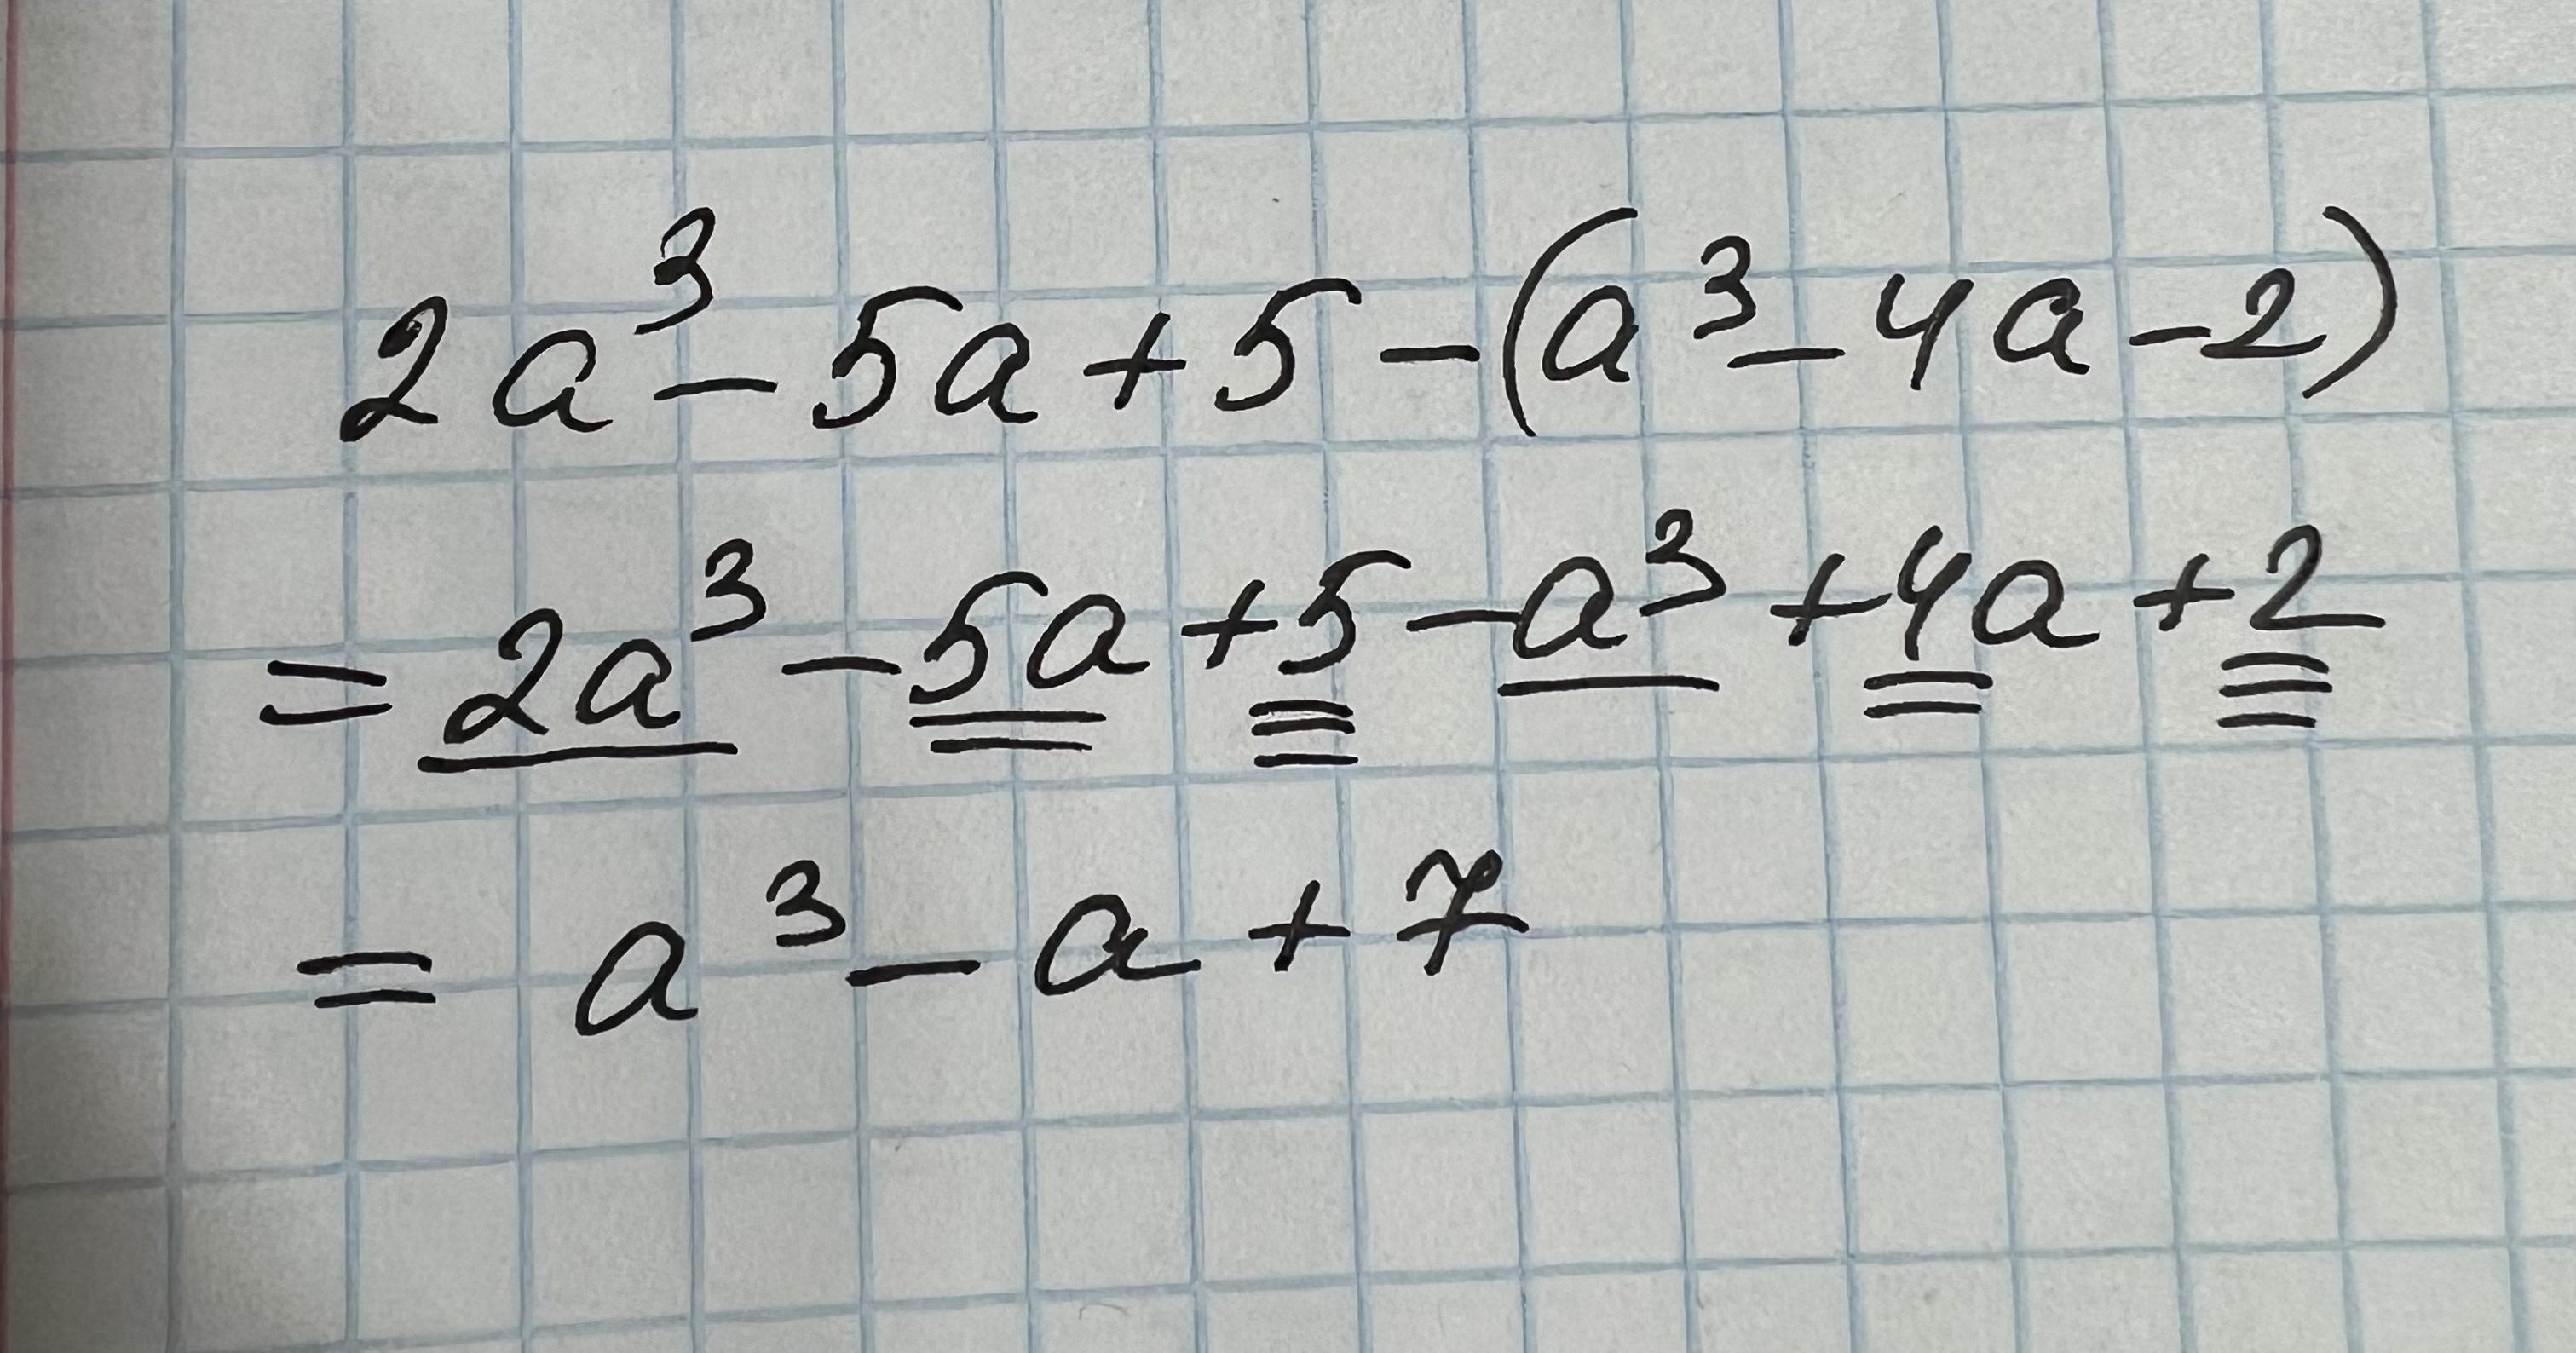 2a³ - 5a + 5 - (a³ - 4a - 2)
= 2a³ - 5a + 5 - a³ + 4a + 2
= a³ - a + 7